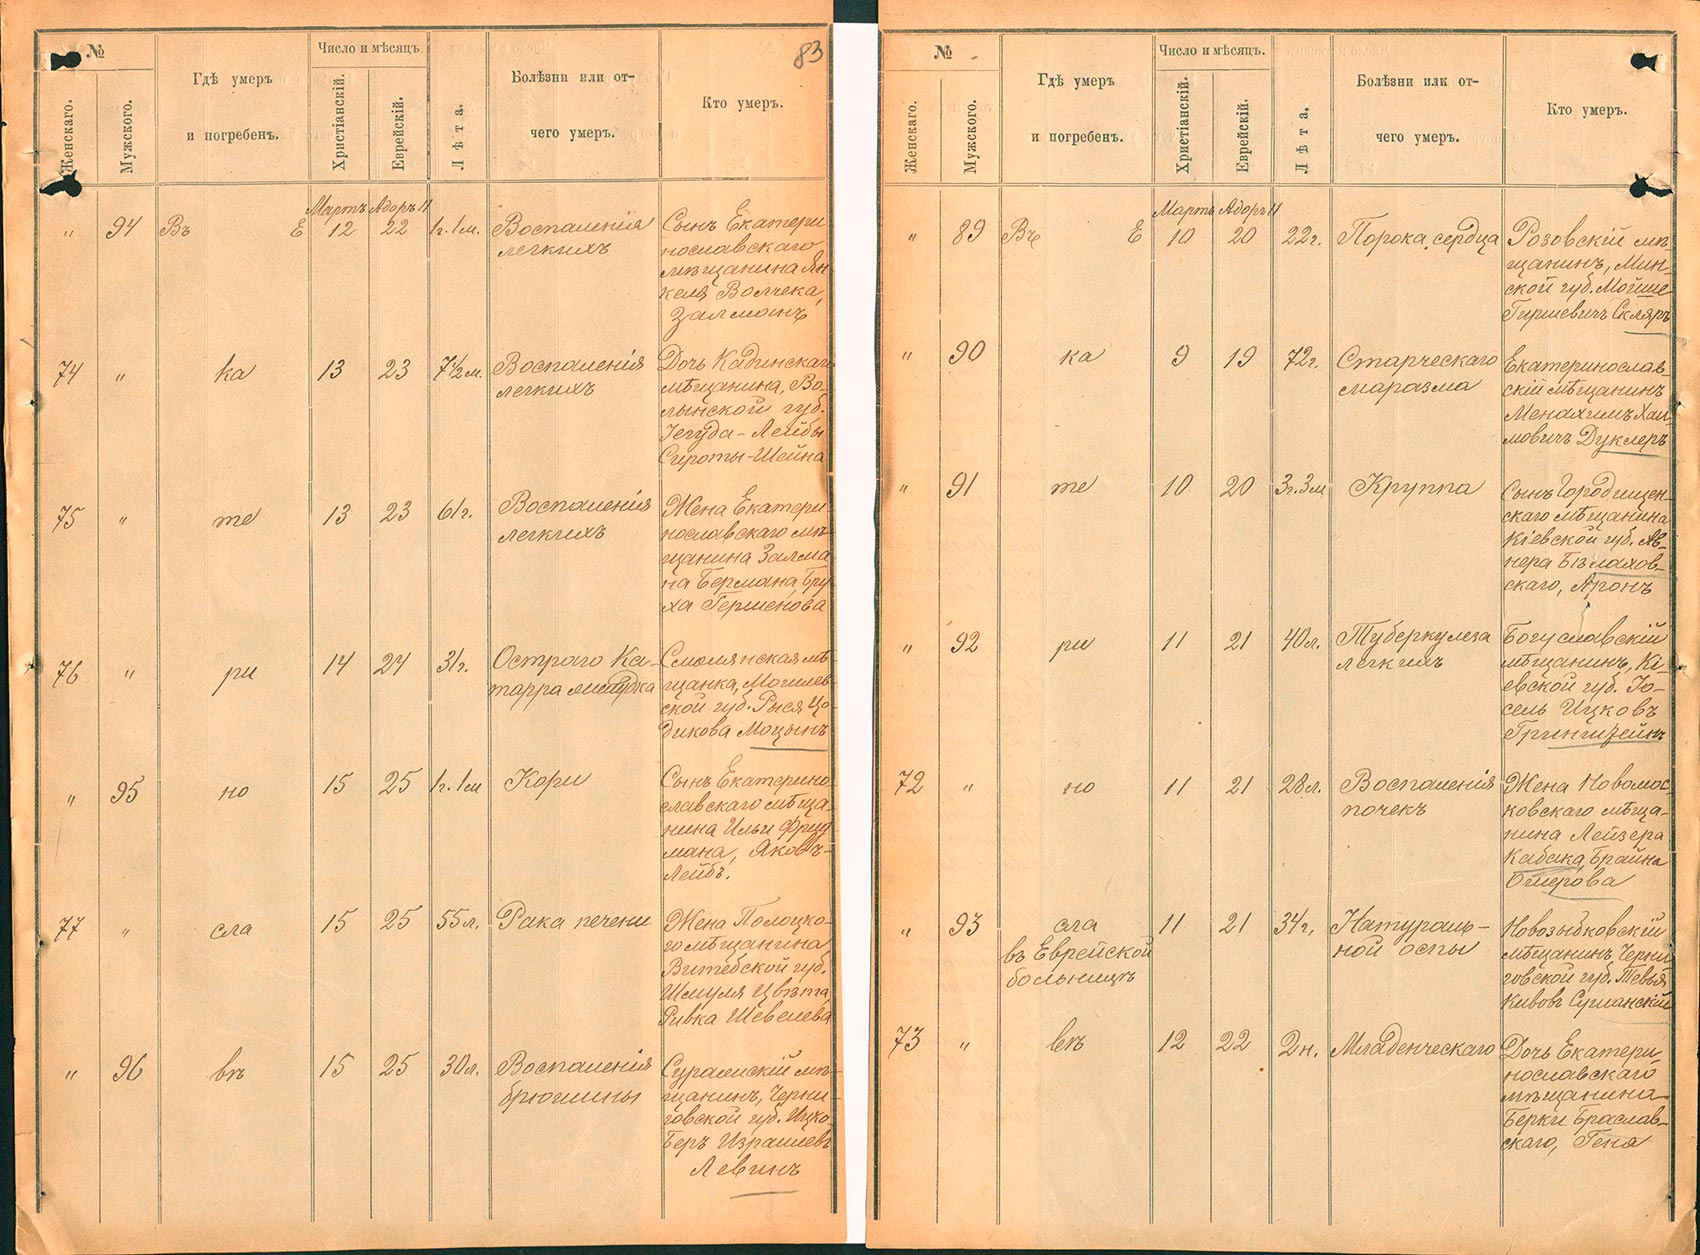 83
№
Число и мѣсяцъ.
Женскаго.
Мужского.
Гдѣ умеръ
и погребенъ.
Христіанскій.
Еврейскій.
Лѣта.
Болѣзни или от-
чего умеръ.
Кто умеръ.
Мартъ Адоръ II
" 94 Въ Е 12 22 1г. 1м. Воспаленія
легкихъ
Сынъ Екатери
нославскаго
мѣщанина Ян
келя Волчека,
Залманъ
74 " ка 13 23 7½ м. Воспаленія
легкихъ
Дочь Кадинскаго
мѣщанина, Во-
лынской губ.
Іегуда-Лейбы
Сироты-Шейна
75 " те 13 23 61г. Воспаленія
легкихъ
Жена Екатери-
нославскаго мѣ-
щанина Залма
на Бермана, Бру
ха Гершенова
76 " ри 14 24 31г. Остраго Ка-
тарра желудка
Смолянская мѣ-
щанка, Могилев
ской губ. Рыся Цо-
дикова Моцынъ
" 95 но 15 25 1г. 1м Кори
Сынъ Екатерино
славскаго мѣща
нина Ильи Фрид
мана, Яковъ-
Лейбъ.
77 " сла 15 25 55л. Рака печени
Жена Полоцко-
го мѣщанина
Витебской губ.
Шмуля Цвѣта,
Ривка Шевелева
" 96 въ 15 25 30л. Воспаленія
брюшины
Суражскій мѣ-
щанинъ, Черни-
говской губ. Ицко-
Беръ Израилевъ
Левинъ
№
Число и мѣсяцъ.
Женскаго.
Мужского.
Гдѣ умеръ
и погребенъ.
Христіанскій.
Еврейскій.
Лѣта.
Болѣзни или от-
чего умеръ.
Кто умеръ.
Мартъ Адоръ II
" 89 Въ Е 10 20 22г. Порока сердца
Розовскій мѣ-
щанинъ, Мин-
ской губ. Мойше
Гиршевичъ Скляръ
" 90 ка 9 19 72г. Старческаго
маразма
Екатеринослав-
скій мѣщанинъ
Менахимъ Хаи-
мовичъ Дуклеръ
" 91 те 10 20 3г. 3м Круппа
Сынъ Городищен-
скаго мѣщанина
Кіевской губ. Ав-
нера Бізлахов-
скаго, Аронъ
" 92 ри 11 21 40л. Туберкулеза
легкихъ
Богуславскій
мѣщанинъ, Кі-
евской губ. Іо-
сель Ицковъ
Гринштейнъ
72 " но 11 21 28л. Воспаленія
почекъ
Жена Новомос-
ковскаго мѣща-
нина Лейзера
Кабака, Брайна
Ошерова
" 93 сла 11 21 34г. Натураль-
ной оспы
въ Еврейской
больницѣ
Новозыбковскій
мѣщанинъ Черни
говской губ. Тевья
Кивовъ Сушанскій
73 " въ 12 22 2н. Младенческаго
Дочь Екатери-
нославскаго
мѣщанина
Берки Браслав-
скаго, Геня